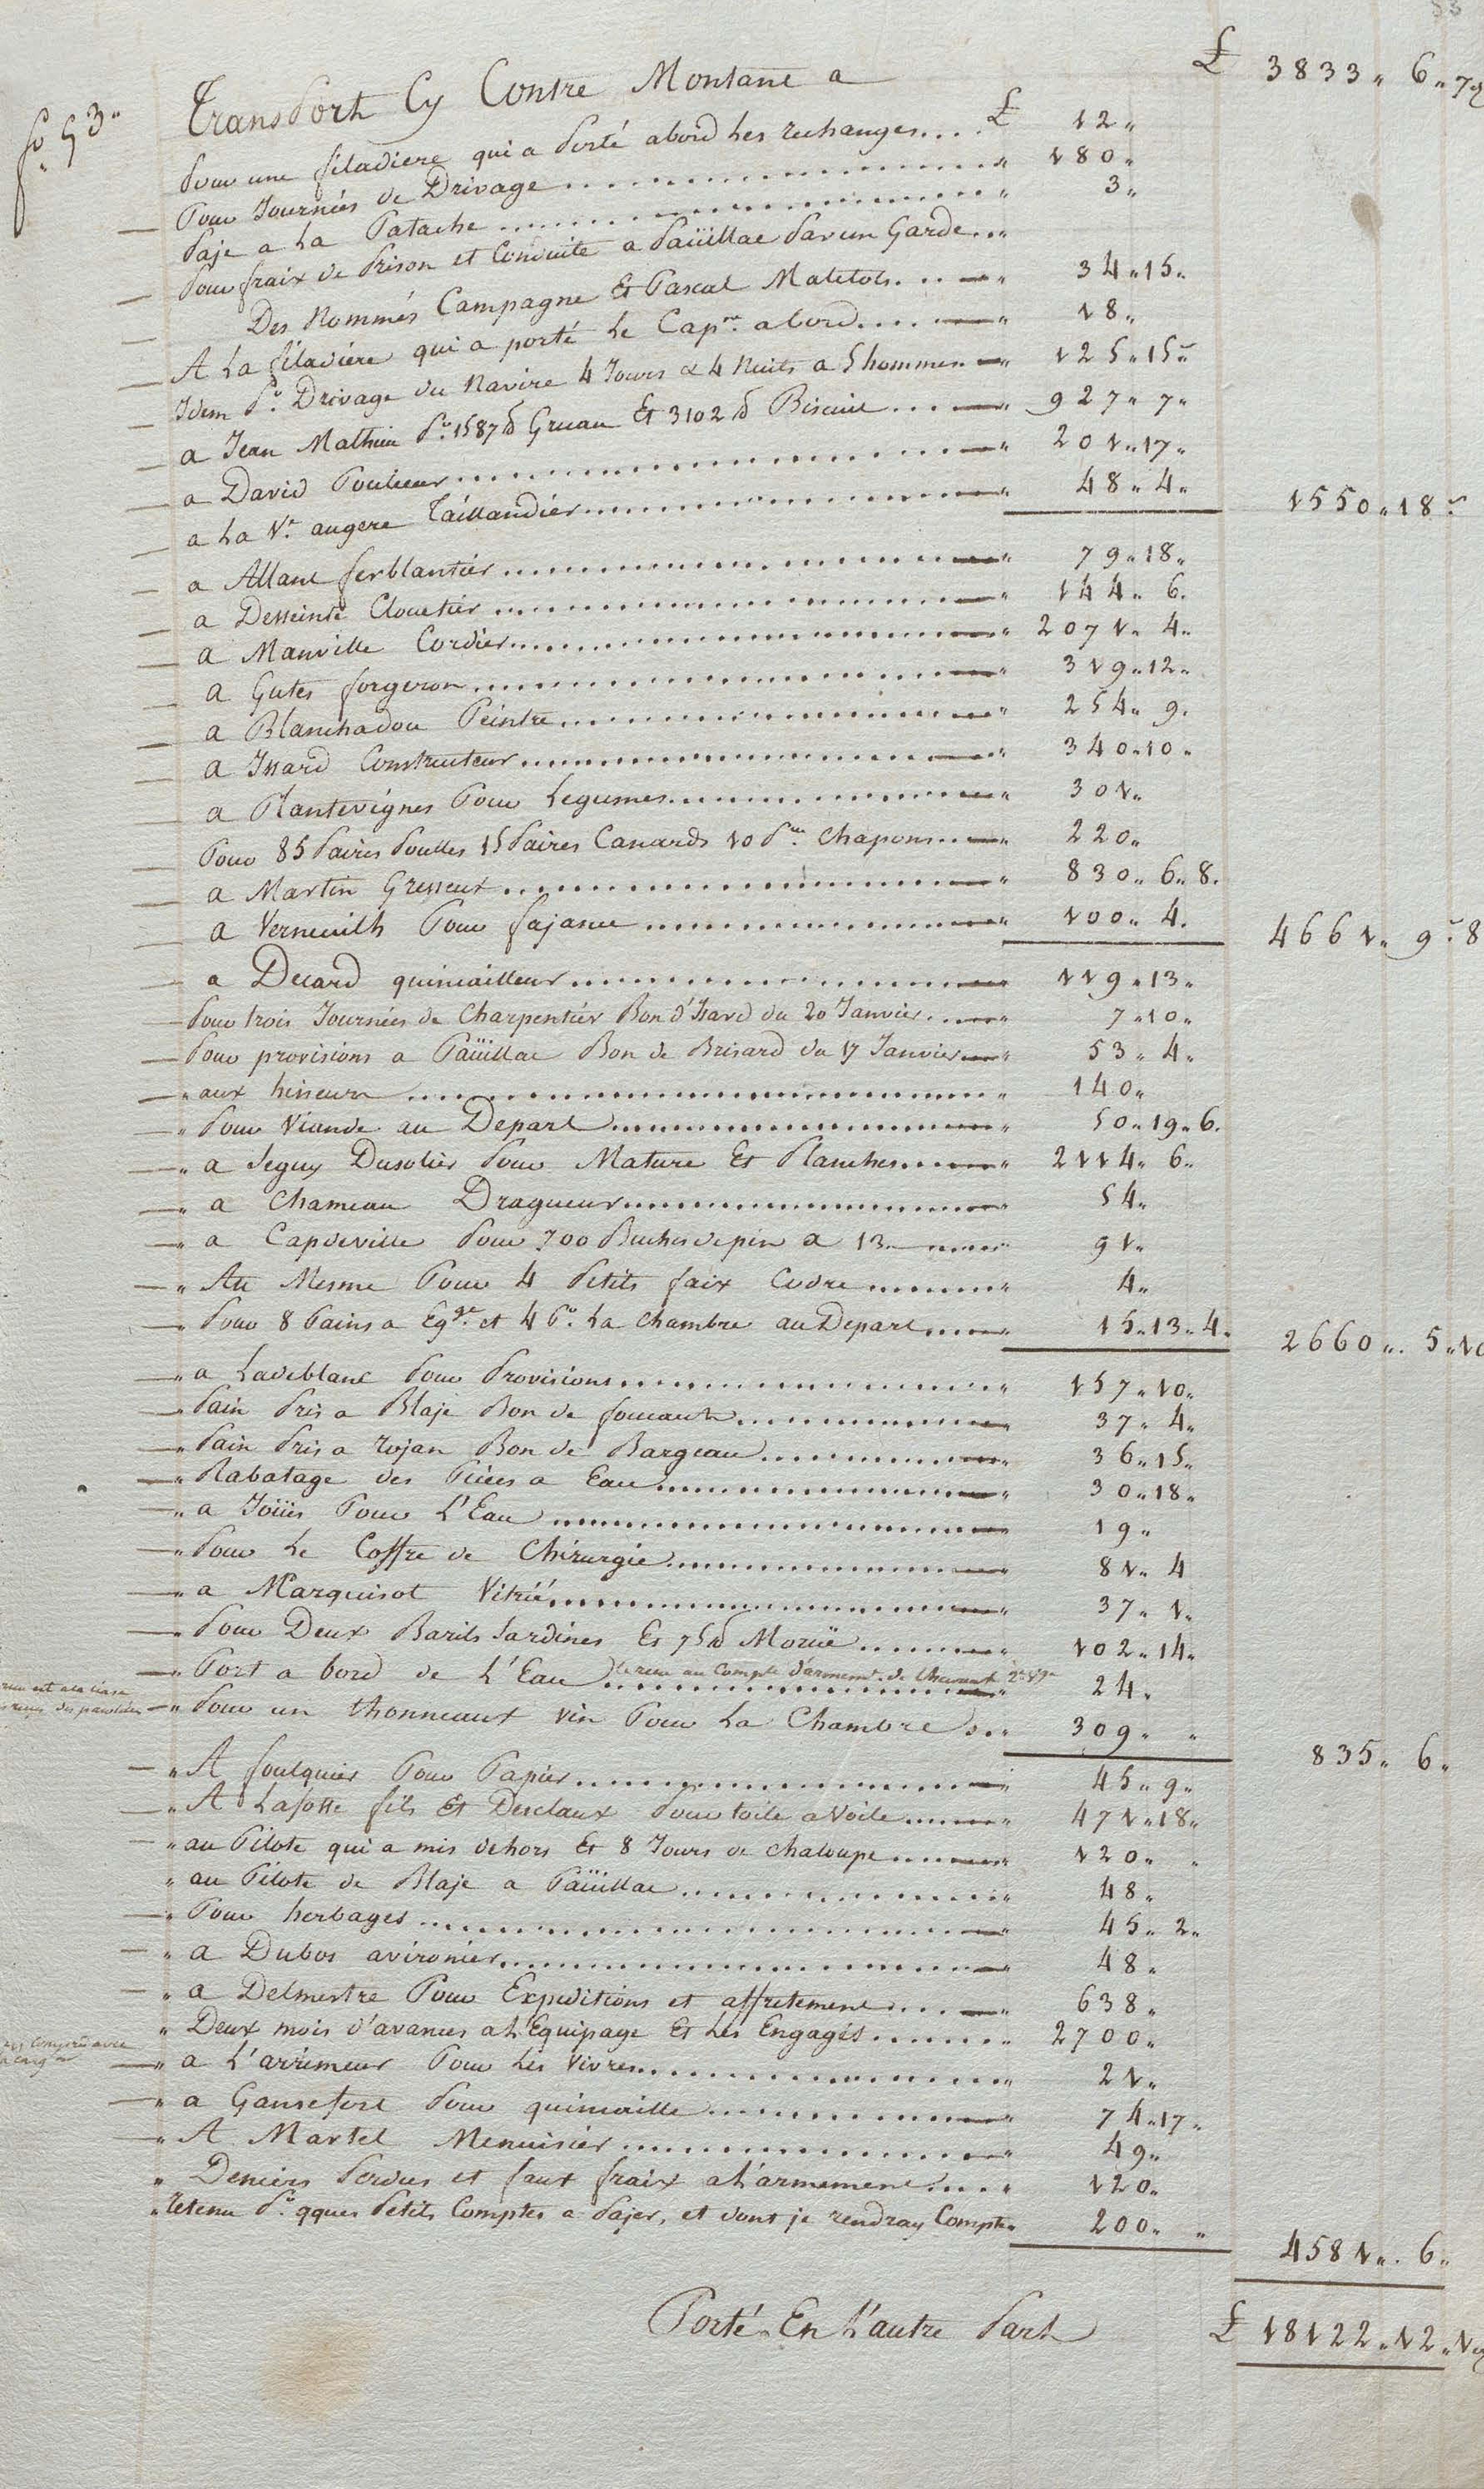 53
fo. 53"
Transport Cy Contre Montant a £ 3833" 6" 7
Pour une filadiere qui a Porté abord Les rechanges.... £ 12"
Pour Journées de Drivage " 180"
Paje a La Patache " 3"
Pour fraix de Prison et Conduite a Paüillac Par un Garde... "
Des Nommés Campagne Et Pascal Matelots. . . " 34" 15"
A La filadiére qui a porté Le Capne. abord. . . . " 18"
Idem Pr. Drivage du Navire 4 Jours & 4 Nuits a 5 hommes " 125" 15"
a Jean Mathieu Pr. 1587 lb Gruau Et 3102 lb Biscuit . . . . " 927" 7"
a David Poulieur " 201" 17"
a La Ve. augere Taillandiér " 48" 4" 1550" 18"
a Allant ferblantiér " 79" 18"
a Desseinte Cloutiér " 144" 6.
a Manville Cordiér " 2071" 4"
a Gutes forgeron " 319" 12"
a Blanchadou Peintre " 254" 9.
a Issard Constructeur " 340" 10"
a Plantevignes Pour Legumes " 301"
Pour 85 Paires Poulles 15 Paires Canards 10 Pres. Chapons " 220"
a Martin Gresseur " 830" 6" 8.
a Verneuilh Pour fajance " 100" 4. 4661" 9" 8
a Decard quincailleur " 119" 13"
Pour trois Journées de Charpentiér Bon d'Isard du 20 Janvier " 7" 10"
Pour provisions a Paüillac Bon de Brisard du 17 Janvier " 53" 4"
" aux hisseurs " 140"
" Pour Viande au Depart " 50" 19" 6.
" a Seguy Dusoliér Pour Mature Et Planches " 2114" 6"
" a Chameau Dragueur " 54"
" a Capdeville Pour 700 Buches de pin a 13 " 91"
" Au Mesme Pour 4 Petits faix Codre " 4"
" Pour 8 Pains a Eqge. et 4 Pr. La Chambre au Depart " 15" 13" 4" 2660" 5" 10
" a Ladeblanc Pour Provisions " 157" 10"
" Pain Pris a Blaje Bon de foucault " 37" 4"
" Pain Pris a rojan Bon de Bargeau " 36" 15"
" Rabatage des Piéces a Eau " 30" 18"
" a Joüis Pour L'Eau " 19"
" Pour Le Coffre de Chirurgie " 81" 4
" a Marquisot Vitrié " 37" 1"
" Pour Deux Barils Sardines Et 75 lb Moruë " 102" 14"
" Port a bord de L'Eau " 24"
" Pour un thonneaux Vin Pour La Chambre " 309" " 835" 6"
" A foulquier Pour Papier " 45" 9"
" A Lafosse fils Et Desclaux Pour toile a Voile " 471" 18"
" au Pilote qui a mis dehors Et 8 Jours de chaloupe " 120" "
" au Pilote de Blaje a Paüillac " 48"
" Pour herbages " 45" 2"
" a Dubos avironiér " 48"
" a Delmestre Pour Expeditions et affretement " 638"
" Deux mois d'avances a L'Equipage Et Les Engagés " 2700"
" a L'arrimeur Pour Les Vivres " 21"
" a Gansefort Pour quincaille " 74" 17"
" A Martel Menuisiér " 49"
" Deniers Perdus et faux fraix a L'armement " 120"
" retenu Pr. qques Petits Comptes a Pajer, et dont je rendray Compte " 200" " 4581" 6"
Porté En L'autre Part £ 18122" 12" 1